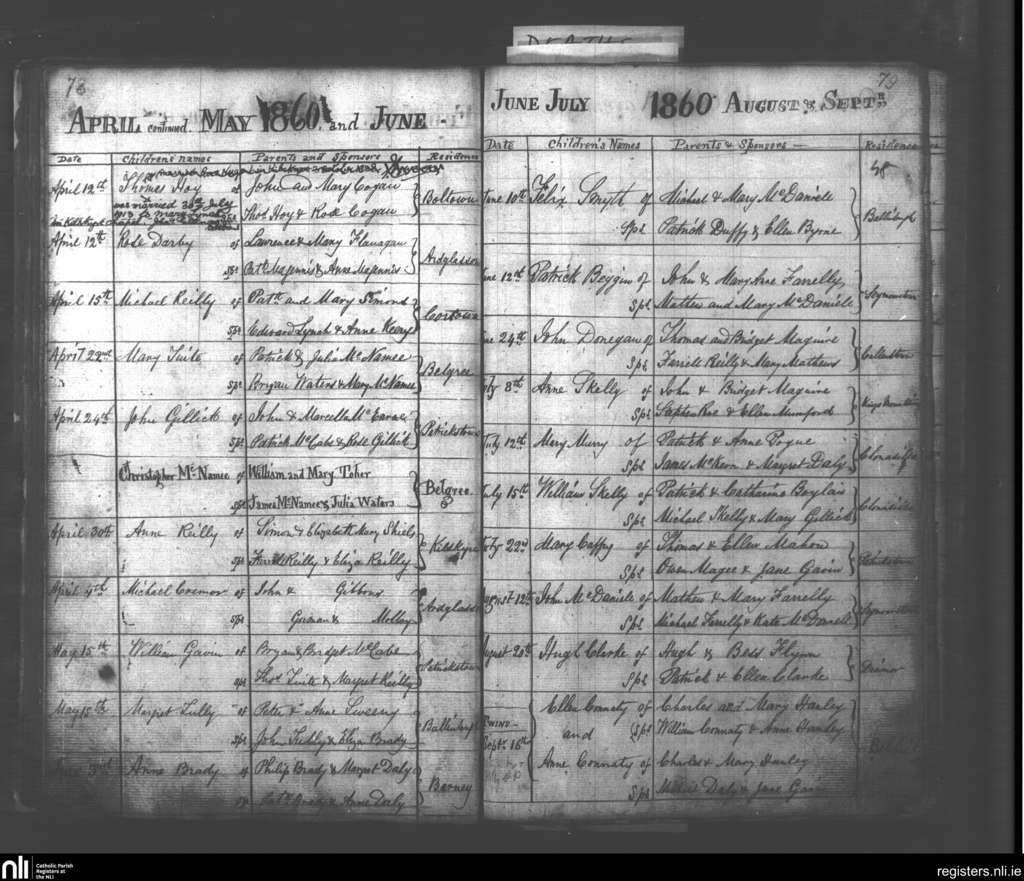 DEATHS
78
APRIL continued. MAY 1860. and JUNE
Date Children's names Parents and Sponsors Residence
April 12th Thomas Hoy of John and Mary Cogan Boltown
was married 30th July
sps Thos Hoy & Rose Cogan
April 12th Rose Darby of Lawrence & Mary Flanagan Ardglasson
sps Patk & Anne
April 15th Michael Reilly of Patk and Mary Simond Cortown
sps Edward Lynch & Anne
April 22nd Mary Tuite of Patrick & Julia McNamee Belgree
sps Bryan Waters & Mary McNamee
April 24th John Gillick of John & Marcella Patrickstown
sps Patrick McCabe & Rose Gillick
Christopher McNamee of William and Mary Toher Belgree.
sps James McNamee & Julia Waters
April 30th Anne Reilly of Simon & Elizabeth Mary Shiels Kilskyre
sps Farrell Reilly & Eliza Reilly
April Michael of John & Gibbons Ardglasson
sps & Molloy
May 15th William Gavin of Bryan & Bridget McCabe Patrickstown
sps Thos Tuite & Margret Reilly
May 15th Margret Lully of Peter & Anne Sweeny Ballinlough
sps John & Eliza Brady
June 3rd Anne Brady of Philip Brady & Margret Daly Berney
sps Patk Brady & Anne Daly
79
JUNE JULY 1860 AUGUST & SEPTR
Date Children's Names Parents & Sponsors Residence
58
June 10th Felix Smyth of Michael & Mary McDaniele Ballinlough
Sps Patrick Duffy & Ellen Byrne
June 12th Patrick Beggin of John & Mary Anne Farrelly
Sps Mathew and Mary McDaniele
June 24th John Donegan of Thomas and Bridget Maguire
Sps Farrell Reilly & Mary Mathews
July 8th Anne Skelly of John & Bridget Maguire
Sps & Ellen Mumford
July 12th Mary Murry of Patrick & Anne Pogue
Sps James McKern & Margret Daly
July 15th William Skelly of Patrick & Catharine Boylan
Sps Michael Skelly & Mary Gillick
July 22nd Mary Caffry of Thomas & Ellen Mahon
Sps Owen Magee & Jane Gavin
August 12th John McDaniele of Mathew & Mary Farrelly
Sps Michael Farrelly & Kate McDonnell
August 20th Hugh Clarke of Hugh & Bess. Flynn
Sps Patrick & Ellen Clarke
Ellen Connaty of Charles and Mary Hanley
TWINS
Septr 16th and Sps William Connaty & Anne Hanley
Anne Connaty of Charles & Mary Hanley
Sps Daly & Jane Gavin
nli Catholic Parish
Registers at
the NLI
registers.nli.ie